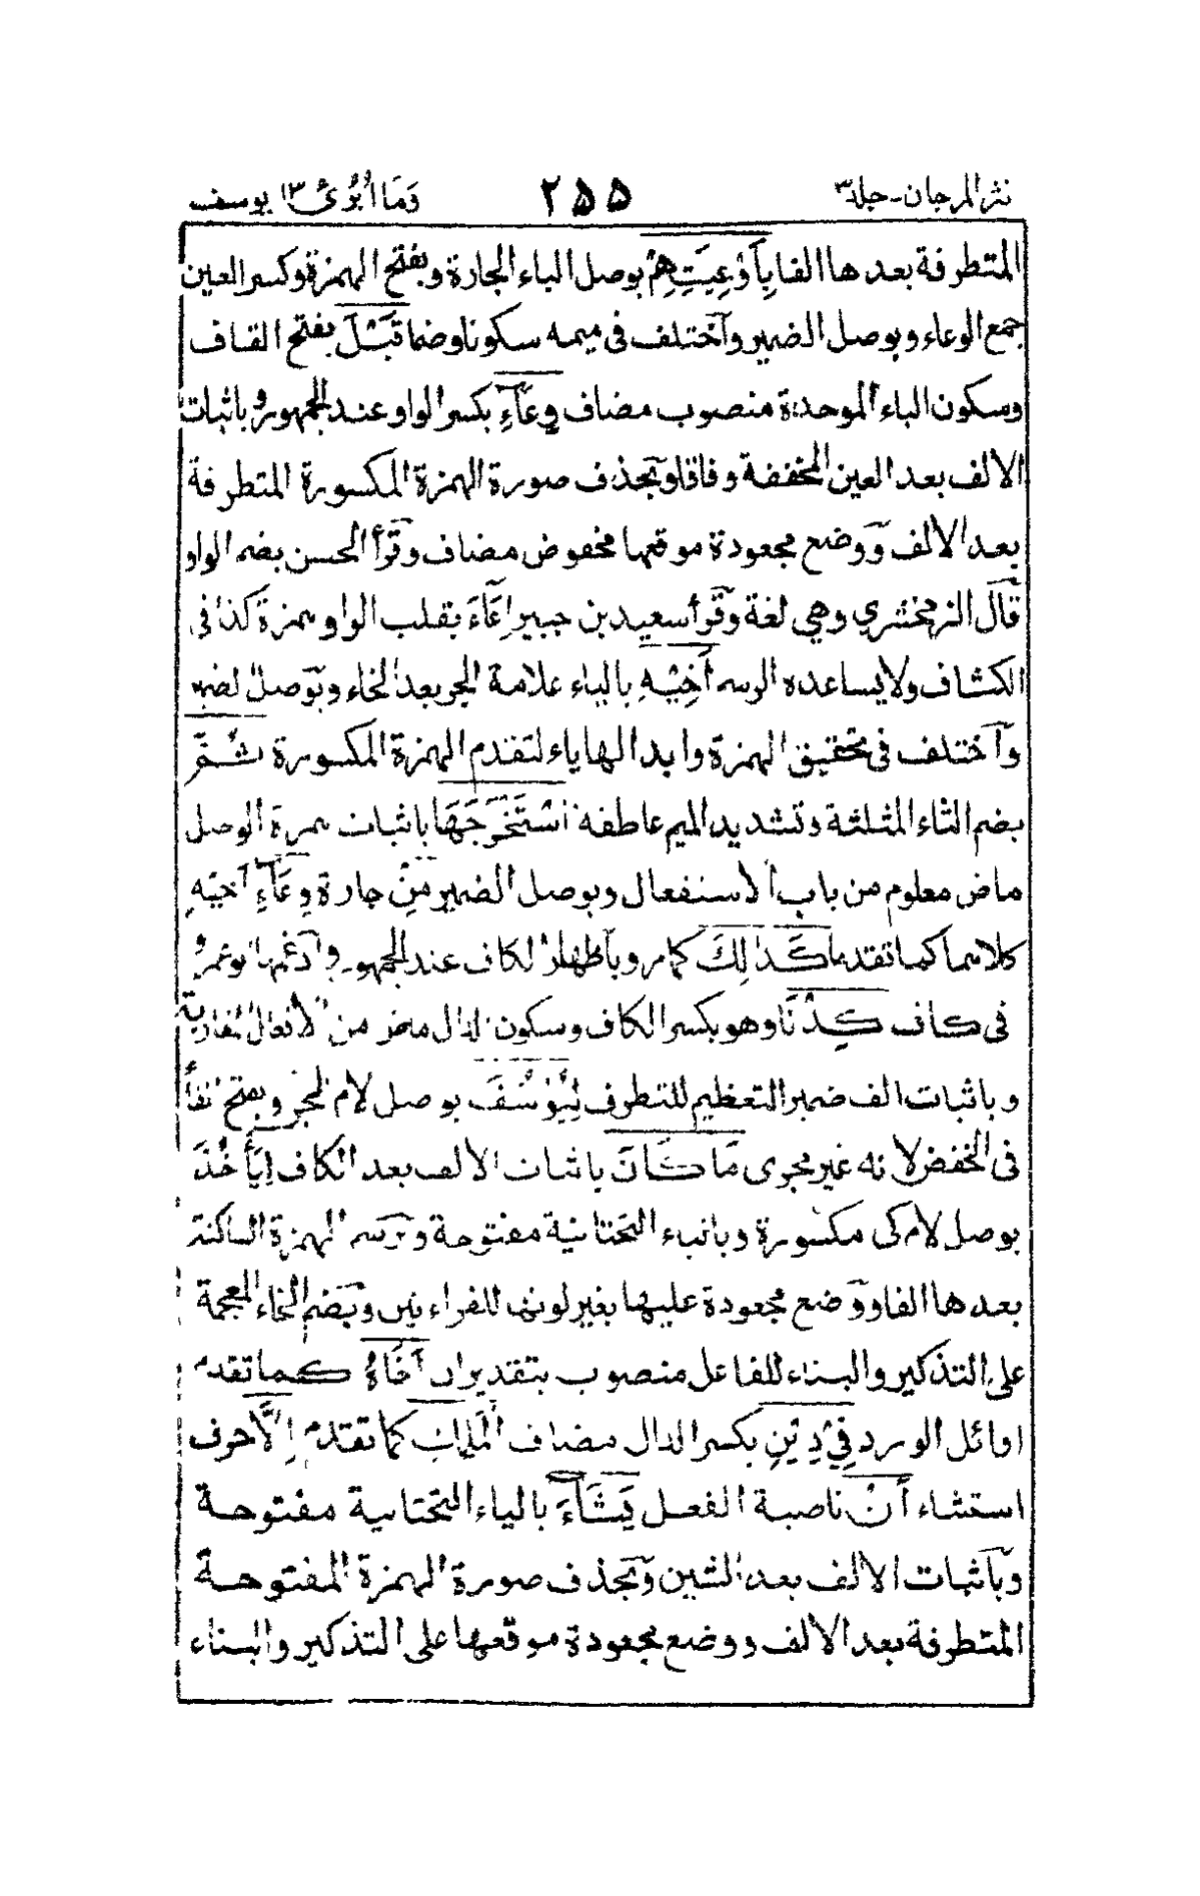 نثر المرجان - جلد ٣
٢٥٥
وَمَا أُبَرِّئُ ١٣ يوسف
المتطرفة بعدها الفا بِأَوْعِيَتِهِمْ بوصل الباء الجارة وبفتح الهمزة وكسر العين
جمع الوعاء وبوصل الضمير وآختلف فى ميمه سكونا وضما قَبْلَ بفتح القاف
وسكون الباء الموحدة منصوب مضاف وِعَآءِ بكسر الواو عند الجمهور وباثبات
الالف بعد العين المخففة وفاقا وبحذف صورة الهمزة المكسورة المتطرفة
بعد الالف ووضع مجعودة موقعها مخفوض مضاف وقرأ الحسن بضم الواو
قال الزمخشري وهي لغة وقرأ سعيد بن جبير إِعَآءَ بقلب الواو همزة كذا فى
الكشاف ولا يساعده الرسم أَخِيْهِ بالياء علامة الجر بعد الخاء وبوصل الضمير
وآختلف فى تحقيق الهمزة وابدالها ياء لتقدم الهمزة المكسورة ثُمَّ
بضم الثاء المثلثة وتشديد الميم عاطفة اسْتَخْرَجَهَا باثبات همزة الوصل
ماض معلوم من باب الاستفعال وبوصل الضمير مِنْ جارة وِعَآءِ أَخِيْهِ
كلاهما كما تقدما كَذٰلِكَ كما مر وبآظهار الكاف عند الجمهور وآدغمها ابو عمرو
فى كاف كِدْنَا وهو بكسر الكاف وسكون الدال ماض من الافعال المقاربة
وباثبات الف ضمير التعظيم للتطرف لِيُوْسُفَ بوصل لام الجر وبفتح الفاء
فى الخفض لانه غير مجرى مَا كَانَ باثبات الالف بعد الكاف لِيَأْخُذَ
بوصل لام كى مكسورة وبالياء التحتانية مفتوحة وبرسم الهمزة الساكنة
بعدها الفا ووضع مجعودة عليها بغير لونها للقراءتين وبضم الخاء المعجمة
على التذكير والبناء للفاعل منصوب بتقدير ان أَخَاهُ كما تقدم
اوائل الورد فِيْ دِيْنِ بكسر الدال مضاف الْمَلِكِ كما تقدم إِلَّا حرف
استثناء أَنْ ناصبة الفعل يَشَآءَ بالياء التحتانية مفتوحة
وبآثبات الالف بعد الشين وبحذف صورة الهمزة المفتوحة
المتطرفة بعد الالف ووضع مجعودة موقعها على التذكير والبناء